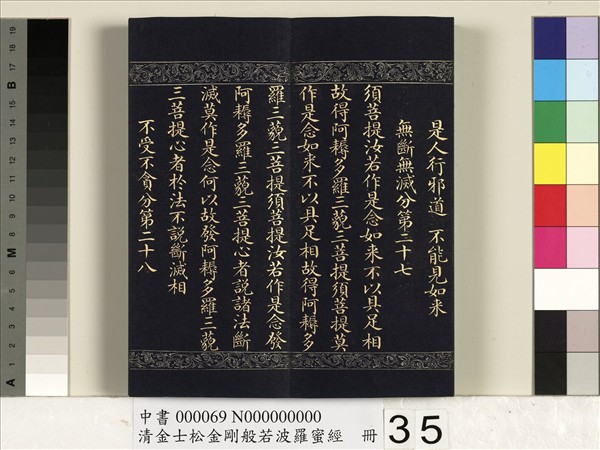 是人行邪道 不能見如來
無斷無滅分第二十七
須菩提汝若作是念如來不以具足相
故得阿耨多羅三藐三菩提須菩提莫
作是念如來不以具足相故得阿耨多
羅三藐三菩提須菩提汝若作是念發
阿耨多羅三藐三菩提心者說諸法斷
滅莫作是念何以故發阿耨多羅三藐
三菩提心者於法不說斷滅相
不受不貪分第二十八
中書 000069 N000000000
清金士松金剛般若波羅蜜經 冊
35
A 1 2 3 4 5 6 M 8 9 10 11 12 13 14 15 B 17 18 19